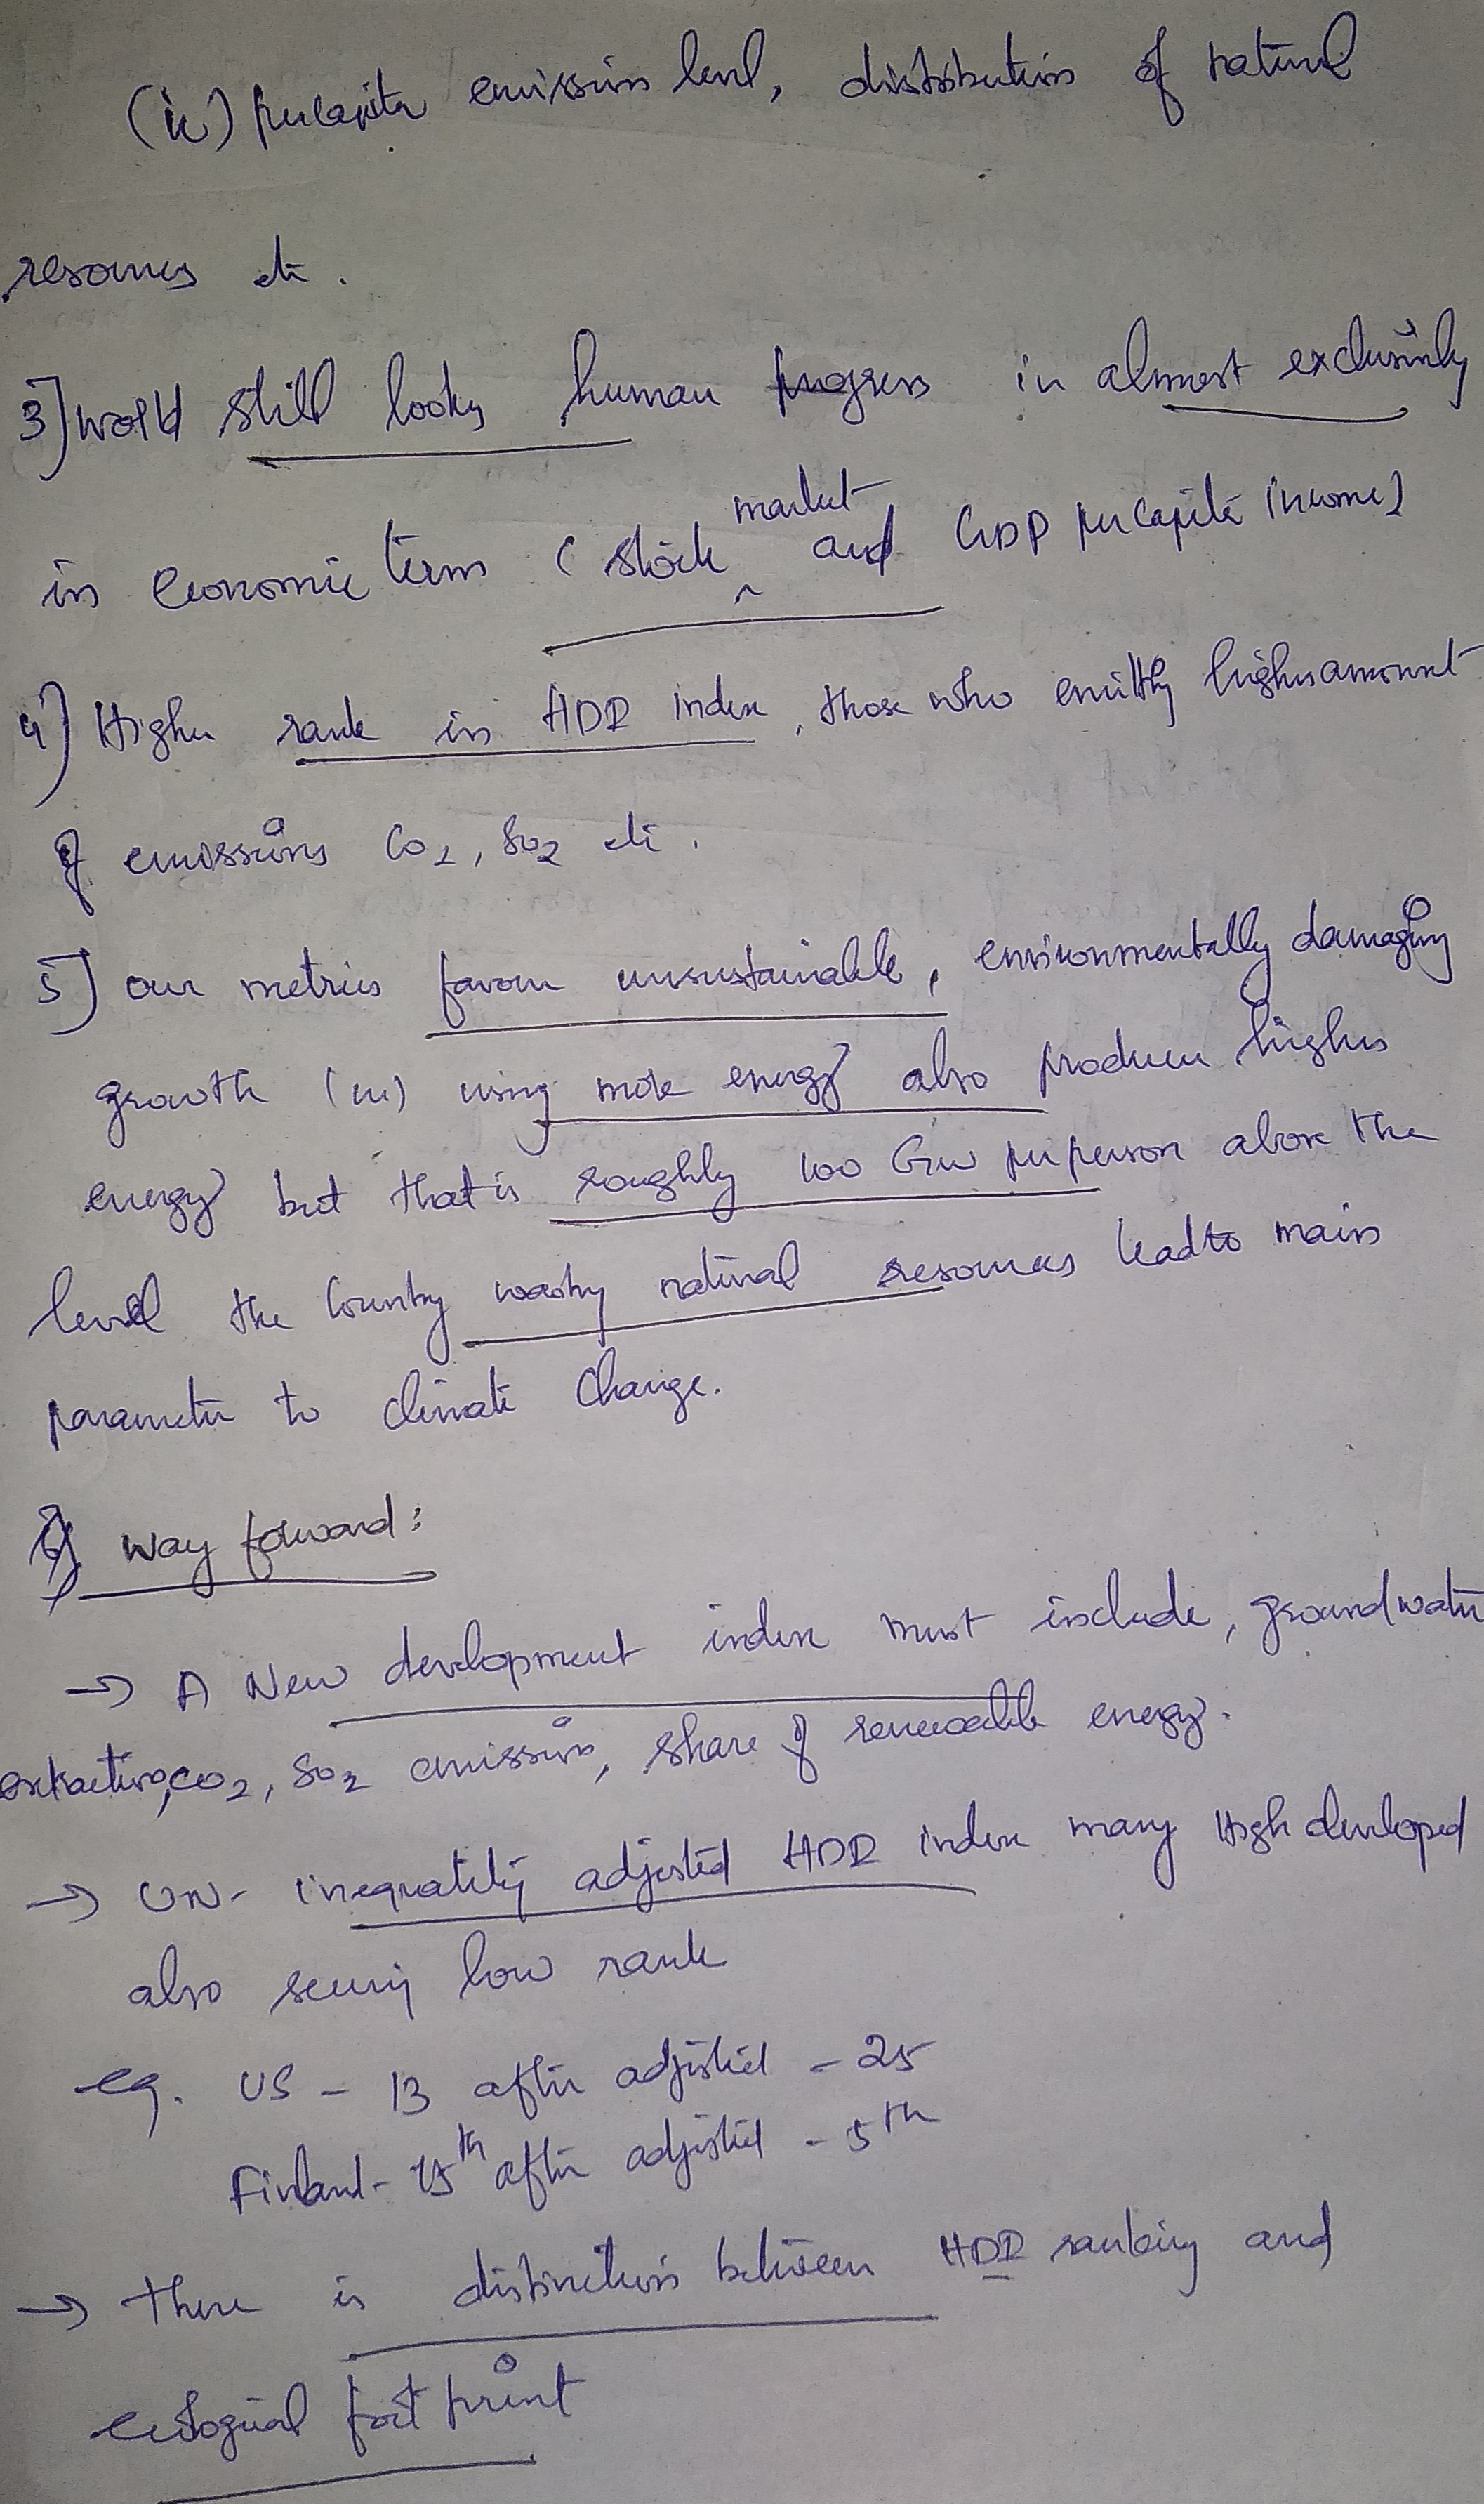 (ie) percapita emission level, distribution of natural
resources etc.
3] World still looks human progress in almost exclusively
in economic terms (stock market and GDP percapita income)
4) Higher rank in HDR index, those who emitting higher amount
of emissions CO2, SO2 etc.
5] our metrics favour unsustainable, environmentally damaging
growth (ie) using more energy also produce higher
energy but that is roughly 100 GW per person above the
level the country wasting natural resources lead to main
parameter to climate change.
6) Way forward:
→ A New development index must include, groundwater
extraction, CO2, SO2 emission, share of renewable energy.
→ UN- inequality adjusted HDR index many High developed
also seeing low rank
eg. US - 13 after adjusted - 25
Finland - 15th after adjusted - 5th
→ There is distinction between HDI ranking and
ecological foot print